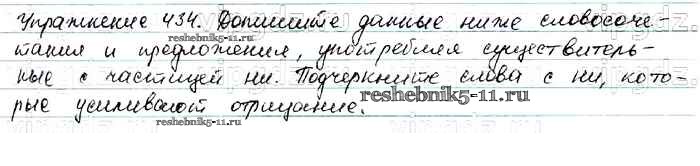 Упражнение 434. Допишите данные ниже словосоче-
тания и предложения, употребляя существитель-
ные с частицей ни. Подчеркните слова с ни, кото-
рые усиливают отрицание.
reshebnik5-11.ru
reshebnik5-11.ru